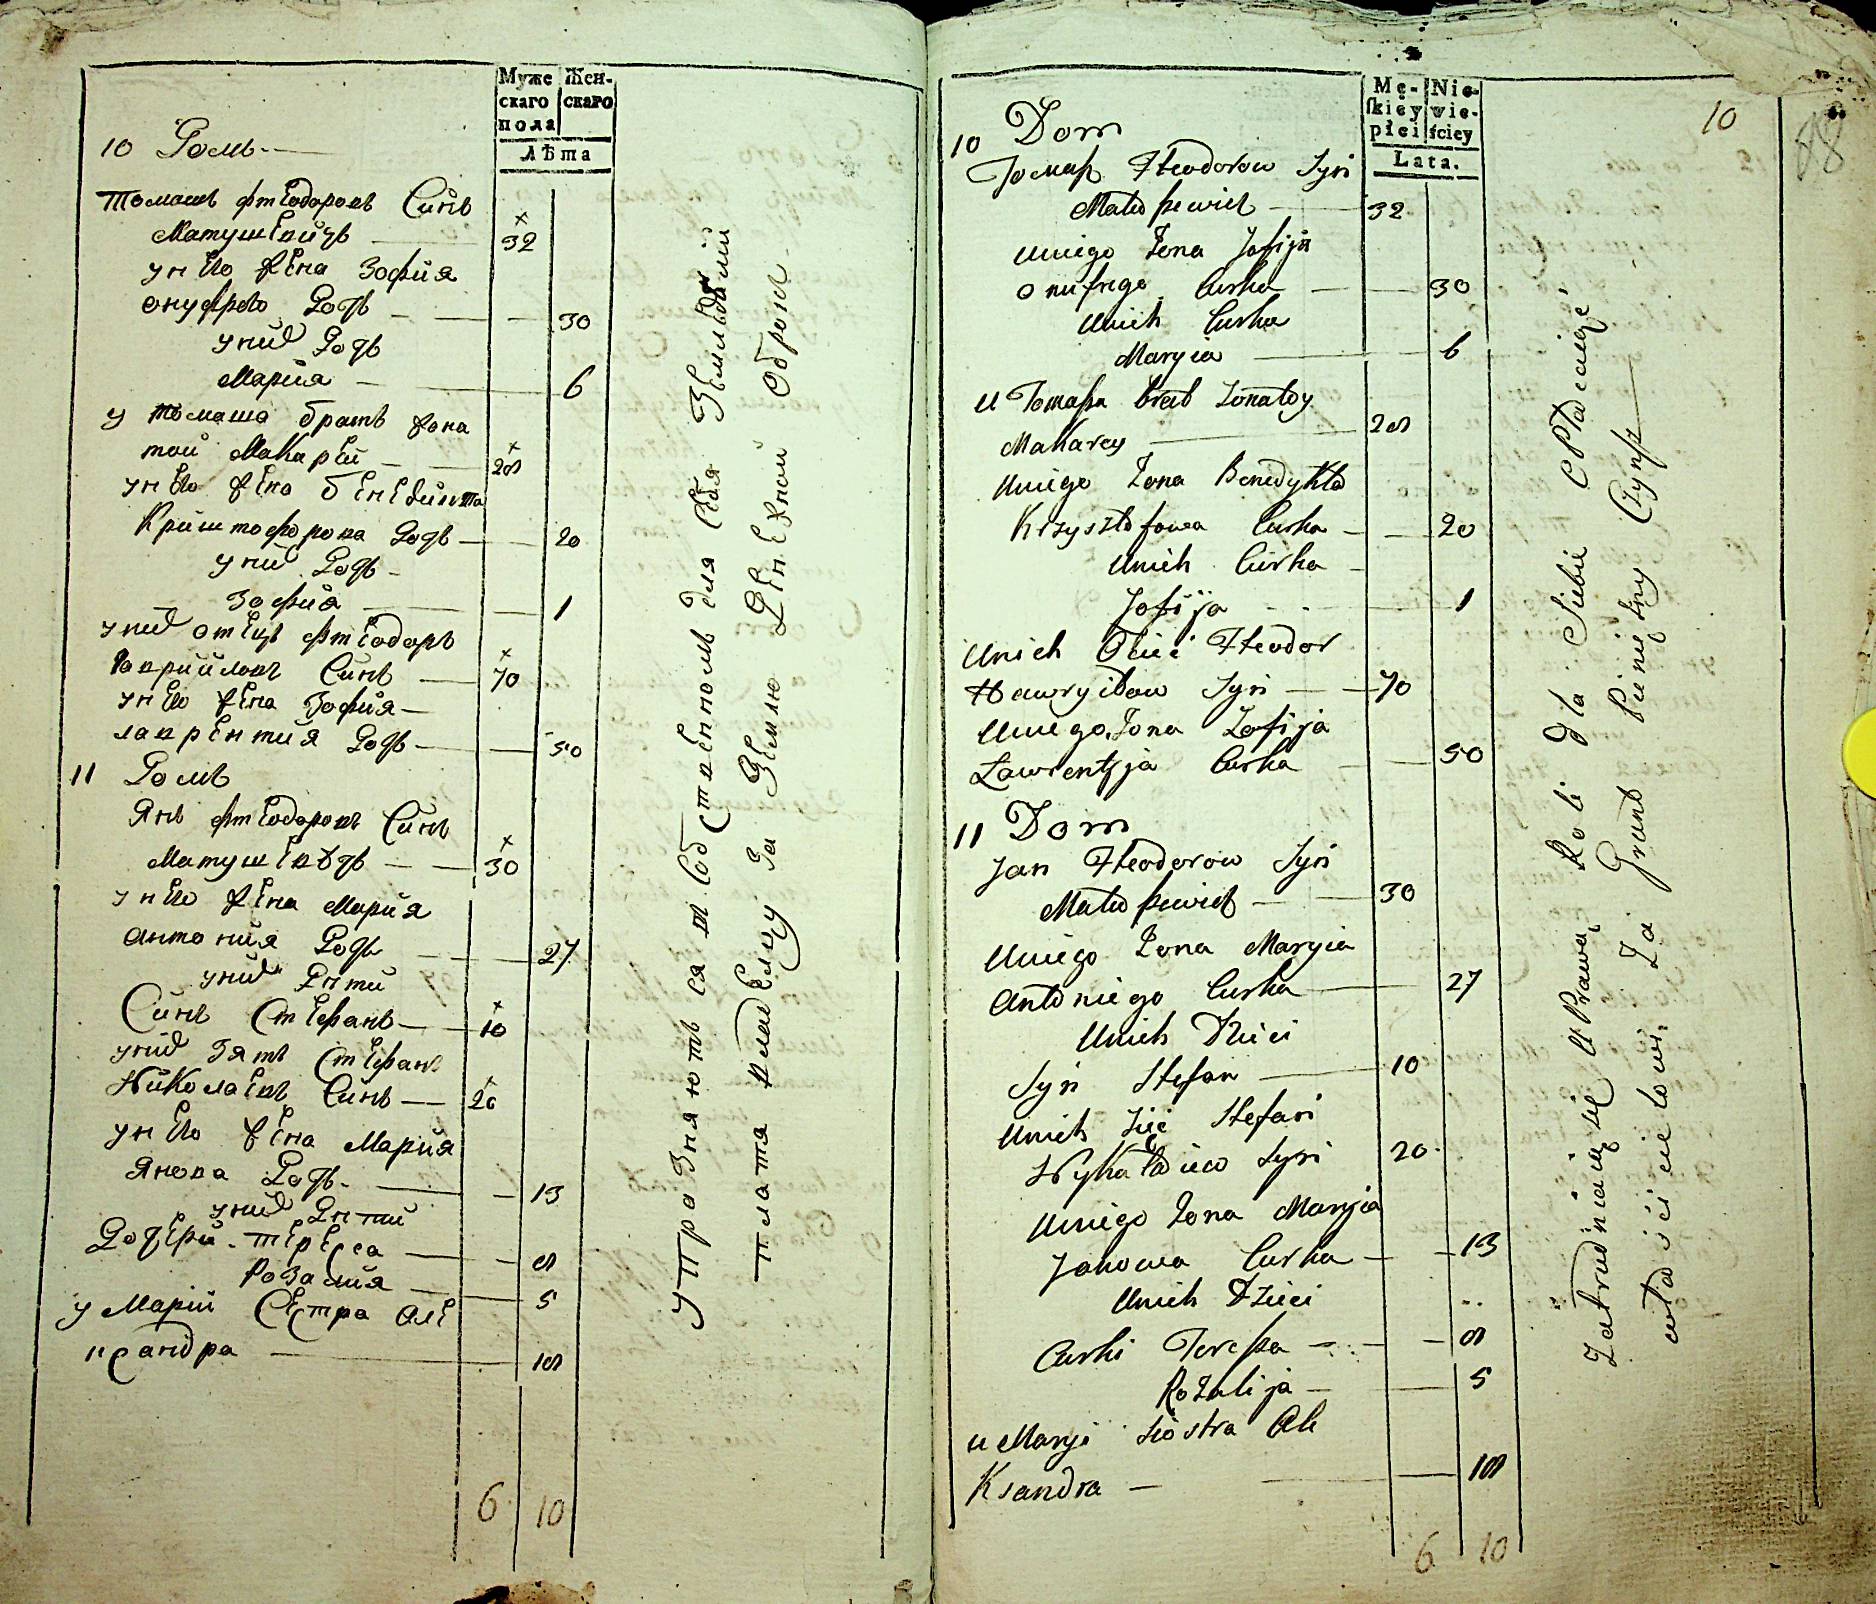 Муже
скаго
пола
Жен-
скаго
Лѣта
10 Домъ
Томашъ Фтеодоровъ Синъ
Матушевичъ 32
у него жена Зофия
Онуфрего Дочь 30
у них Дочь
Мария 6
у томаша братъ жона
тои Макареи 28
у него жена бенедикта
Криштофорова Дочь 20
у них Дочь
Зофия 1
у них отецъ Фтеодоръ
Гаврииловъ Синъ 70
у него жена Зофия
лаврентия Дочь 50
11 Домъ
Янъ Фтеодоровъ Синъ
Матушевѣчъ 30
у него жена Мария
антония Дочь 27
у них Дѣти
Синъ Стефанъ 10
у них Зять Стефанъ
Николаевъ Синъ 20
у него жена Мария
Янова Дочь 13
у них Дѣти
Дочери Тереса 8
Розалия 5
у Марии Сестра Але
ксандра 18
6 10
упразняютъся в Собственномъ для Себя Земледелии
плата владелцу за Землю Денежнои Оброкъ
Mę-
skiéy
płci
Nie-
wie-
ściey
Lata.
10
88
10 Dom
Tomasz Fteodorow Syn
Matuszewicz 32
Uniego Zona Zofija
Onufrego Curka 30
Unich Curka
Maryia 6
u Tomasza brat zonaty
Makarey 28
Uniego Zona Benedykta
Krzysztofowa Curka 20
Unich Curka
Zofija 1
Unich Ociec Fteodor
Hawryiłow Syn 70
Uniego Zona Zofija
Lawrentyja Curka 50
11 Dom
Jan Fteodorow Syn
Matuszewicz 30
Uniego Zona Maryia
Antoniego Curka 27
Unich Dzieci
Syn Stefan 10
Unich Zięć Stefan
Nykołaiew Syn 20
Uniego Zona Maryia
Janowa Curka 13
Unich Dzieci
Curki Teressa 8
Rozalija 5
u Maryi siostra Ale
Ksandra 18
6 10
Zatrudniaią się uprawą Roli dla Siebie Płacięcé
właścicielowi Za Grunt Pienięzny Czynsz